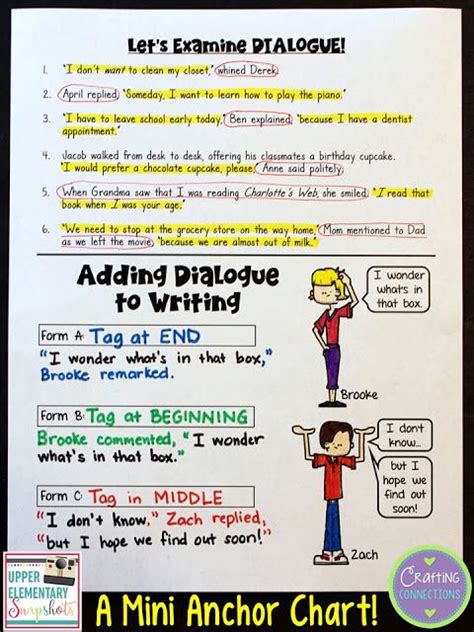 Let's Examine DIALOGUE!
1. "I don't want to clean my closet," whined Derek.
2. April replied, "Someday, I want to learn how to play the piano."
3. "I have to leave school early today," Ben explained, "because I have a dentist
appointment."
4. Jacob walked from desk to desk, offering his classmates a birthday cupcake.
"I would prefer a chocolate cupcake, please," Anne said politely.
5. When Grandma saw that I was reading Charlotte's Web, she smiled, "I read that
book when I was your age."
6. "We need to stop at the grocery store on the way home," Mom mentioned to Dad
as we left the movie, "because we are almost out of milk."
Adding Dialogue
to Writing
Form A: Tag at END
"I wonder what's in that box,"
Brooke remarked.
I wonder
what's in
that box.
Brooke
Form B: Tag at BEGINNING
Brooke commented, "I wonder
what's in that box."
Form C: Tag in MIDDLE
"I don't know," Zach replied,
"but I hope we find out soon!"
I don't
know...
but I
hope we
find out
soon!
Zach
UPPER
ELEMENTARY
Snapshots
A Mini Anchor Chart!
Crafting
CONNECTIONS